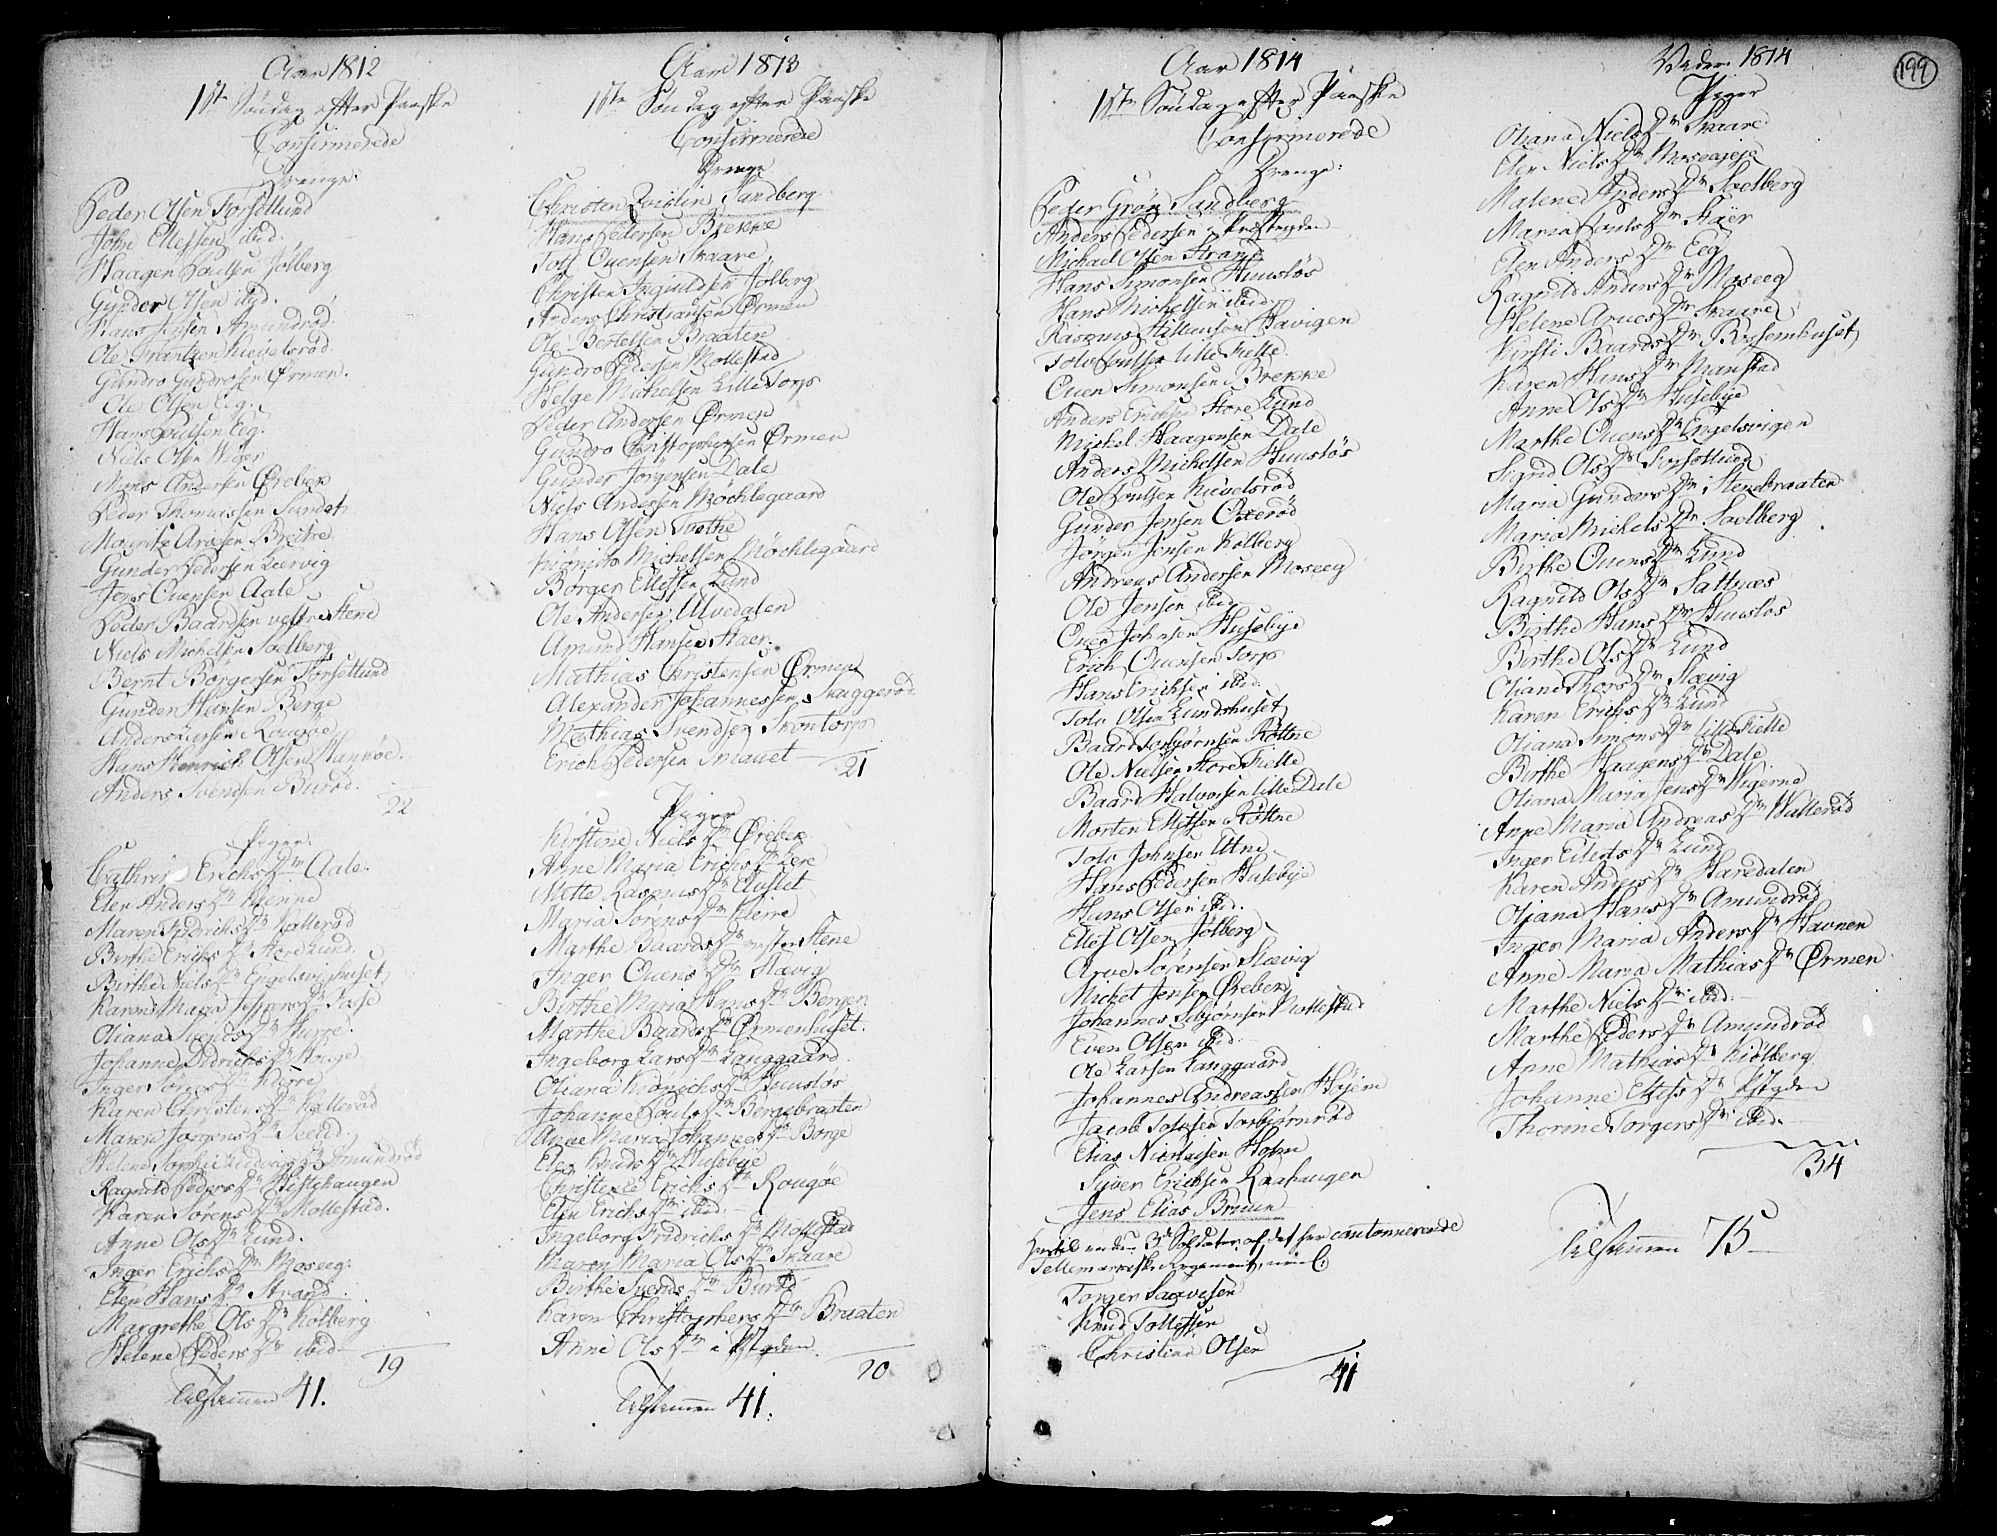 Aar 1812
1ste Søndag efter Paaske
Confirmerede
Drenge:
Peder Olsen Torsetlund
John Ellefsen ibid.
Haagen Poulsen Jølberg
Gunder Olsen ibid.
Hans Jensen Amundrød
Ole Frantzen Kievelsrød
Gundro Gundrosen Ørmen.
Ole Olsen Eeg.
Hans Poulsen Eeg.
Niels Olsen Wiger
Mons Andersen Ørebek
Peder Thomassen Sundet
Mouritz Arnesen Breitre
Gunder Pedersen Leervig
Jens Ouensen Aale
Peder Baardsen vestre Stene
Niels Michelsen Soelberg
Bernt Børgersen Torsetlund
Gunder Hansen Berge
Anders Larsen Rougøe
Hans Henrich Olsen Hankøe.
Anders Svendsen Burød.
22
Piger:
Cathrine Erichs Dtr Aale.
Elen Anders Dtr Kienne
Maren Fridrichs Dtr Kallerød
Birthe Erichs Dtr Store Lund.
Birthe Niels Dtr Engelsvighuset
Karen Maria Jeppes Dtr
Oliana Svends Dtr Kirre.
Johanne Didrichs Dtr
Inger Jonas Dtr Kierre
Karen Christens Dtr Kallerød
Maren Jørgens Dtr
Helene Sophie Ludvigs Dtr Amundrød
Ragnild Peders Dtr Hestehaugen
Karen Sørens Dtr Mollestad.
Anne Ols Dtr Lund.
Inger Erichs Dtr Moseeg.
Elen Hans Dtr Strand.
Margrethe Ols Dtr Kolberg
Helene Peders Dtr ibid
19
Tilsammen 41.
Aar 1813
1ste Søndag efter Paaske
Confirmerede
Drenge
Christen Qvislin Sandberg
Hans Pedersen Brekke
Tolf Ouensen Skaare
Christen Ingvildsen Jolberg
Anders Christiansen Ørmen
Ole Bertelsen Braaten
Gundro Pedersen Mollestad
Helge Michelsen Lille Torp
Peder Andersen Ørmen
Gundro Christophersen Ørmen
Gunder Jørgensen Dale
Niels Andersen Møchlegaard
Hans Olsen Tvethe
Kiønich Michelsen Møchlegaard
Børger Ellefsen Lund
Ole Andersen Ulvedalen
Amund Hansen Staer.
Mathias Christensen Ørmen
Alexander Johannessen Skaggerød
Mathias Svendsen Skontorp
Erich Pedersen Smauet
21
Piger
Kirstine Niels Dtr Ørebek
Anne Maria Erichs Dtr Lere
Mette Rasmus Dtr Eluset
Maria Sørens Dtr Kierre
Marthe Baards Dtr vestre Stene
Inger Ouens Dtr Slævig
Birthe Maria Hans Dtr Bergen
Marthe Baards Dtr Ørmenhuset.
Ingeborg Lars Dtr Langgaard.
Oliana Kiønichs Dtr Huusløs
Johanne Pouls Dtr Bergebraaten
Anne Maria Johannes Dtr Borge
Elen Knuds Dtr Husebye
Christense Erichs Dtr Rougøe
Elen Erichs Dtr ibid.
Ingeborg Fridrichs Dtr Mollestad
Maren Maria Ols Dtr Skaare
Birthe Svends Dtr Burød
Karen Christophers Dtr Braaten
Anne Ols Dtr i Pbygden.
20
Tilsammen 41.
Aar 1814
1ste Søndag efter Paaske
Confirmerede
Drenge:
Peder Grøn Sandberg
Anders Pedersen i Præstbygden
Michael Olsen Strand
Hans Simonsen Huusløs
Hans Michelsen ibid.
Rasmus Kittelsen Havigen
Tolv Poulsen lille Fielle
Ouen Simonsen Brekke
Anders Erichsen Store Lund
Michel Haagensen Dale
Anders Michelsen Huusløs
Ole Poulsen Kievelsrød
Gunder Jensen Oxerød
Jørgen Jensen Kolberg
Andreas Andersen Moseeg
Ole Jensen ibid.
Ouen Johnsen Husebye
Erich Ouensen Torp
Hans Erichsen ibid.
Tolv Olsen Lundshuset
Baard Torbjørnsen Røtne
Ole Nielsen Store Fielle
Baard Halvorsen lille Dale
Morten Ellefsen Røtne
Tolv Johnsen Utne
Hans Pedersen Husebye
Hans Olsen ibid.
Ellef Olsen Jølberg
Arve Sørensen Slævig
Michel Jensen Ørebek
Johannes Esbjørnsen Mollestad
Even Olsen ibid.
Ole Larsen Langgaard
Johannes Andreassen Hijem
Jacob Tolvsen Torbjørnrød
Elias Nicolaisen Holm
Syver Erichsen Raahaugen
Jens Elias Bruun
Hertil endnu 3de Soldater af det her cantonnerende
Tellemarkiske Regiment, nemlig:
Torger Saavesen
Knud Tollefsen
Christian Olsen
41
199
Videre 1814
Piger
Oliana Niels Dtr Skaare
Elen Niels Dtr Moseageje
Malene Anders Dtr Soelberg
Maria Pouls Dtr Staer
Elen Anders Dtr Eeg
Ragnild Anders Dtr Moseeg
Helene Arnes Dtr Skaare
Kirsti Baards Dtr Rossenhuset
Karen Hans Dtr Manstad
Anne Ols Dtr Husebye
Marthe Ouens Dtr Engelsvigen
Sigrid Ols Dtr Torsetlund
Maria Gunders Dtr i Stenbraaten
Maria Michels Dtr Soelberg
Birthe Ouens Dtr Lund
Ragnild Ols Dtr Saltnæs
Birthe Hans Dtr Huusløs
Berthe Ols Dtr Lund
Oliana Thors Dtr Slævig
Karen Erichs Dtr Lund
Oliana Simons Dtr lille Fielle
Birthe Haagens Dtr Dale
Oliana Maria Jens Dtr Wigerne
Anne Maria Andreas Dtr Wallerød
Inger Eilerts Dtr Lund
Karen Anders Dtr Haredalen
Oliana Hans Dtr Amundrød
Inger Maria Anders Dtr Havnen
Anne Maria Mathias Dtr Ørmen
Marthe Niels Dtr ibid.
Marthe Peders Dtr Amundrød
Anne Mathias Dtr Kiølberg
Johanne Ellefs Dtr Pbygden
Thorine Torgers Dtr ibid.
34
Tilsammen 75